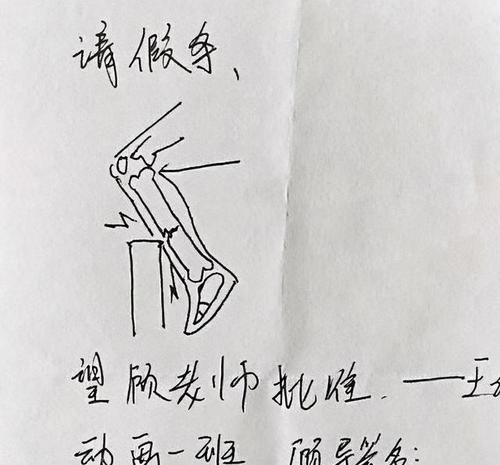 请假条、
望顾老师批准.——王
动画一班 顾导签名: